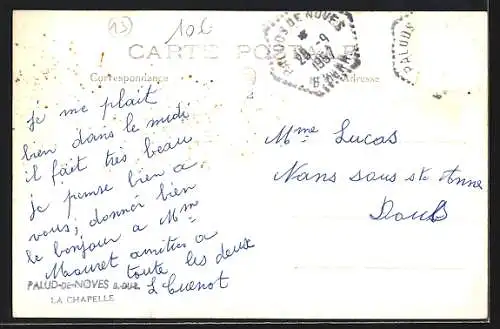 13
106
PALUDS DE NOVES
28-9
1957
B. DU RH.
PALUDS
CARTE POSTALE
Correspondance
Adresse
Je me plait
bien dans le midi
il fait très beau
Je pense bien a
vous, donner bien
le bonjour a Mme
Mauret amitiés a
toute les deux
L Cuenot
Mme Lucas
Nans sous Ste Anne
Doubs
PALUD-DE-NOVES B.-DU-R.
LA CHAPELLE